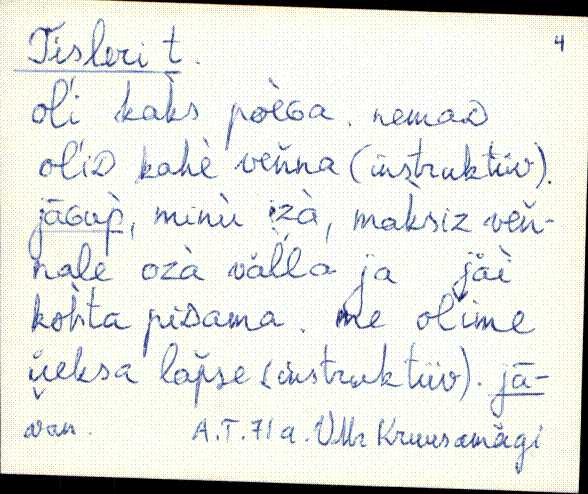 4
Tisleri t.
oĺi kaks pòẹGa. nemaD
oĺiD kahè veňna (instruktiiv).
jāGùp̀, minù izà, maksiz veň-
nale ozà vàlla ja jäì
kohta piDama. me oĺime
ṷeksa lapse (instruktiiv). jā-
van. A.T. 71 a. VMr Kruusamägi